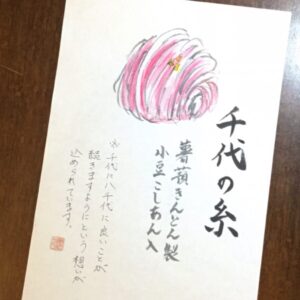 千代の糸
薯蕷きんとん製
小豆こしあん入
※千代に八千代に良いことが
続きますようにという想いが
込められています。